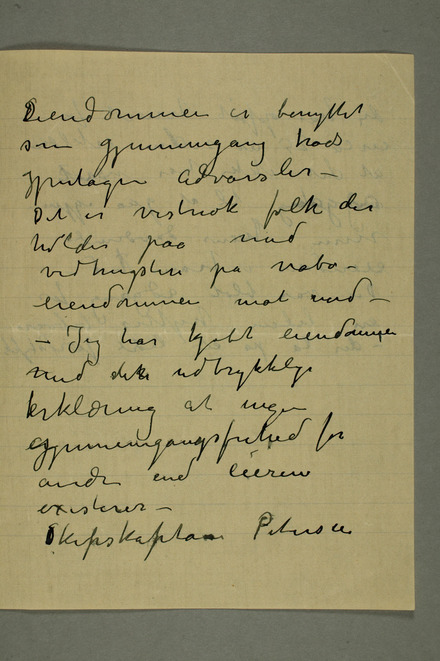 Eiendommen er benyttet
som gjennemgang trods
gjentagne advarsler –
Det er vistnok folk der
holder paa med
paa nabo-
eiendommen mot nord –
– Jeg har kjøbt eiendommen
med den udtrykkelige
erklæring at ingen
gjennemgangsfrihed for
andre end eieren
existerer –
Skipskaptain Petersen